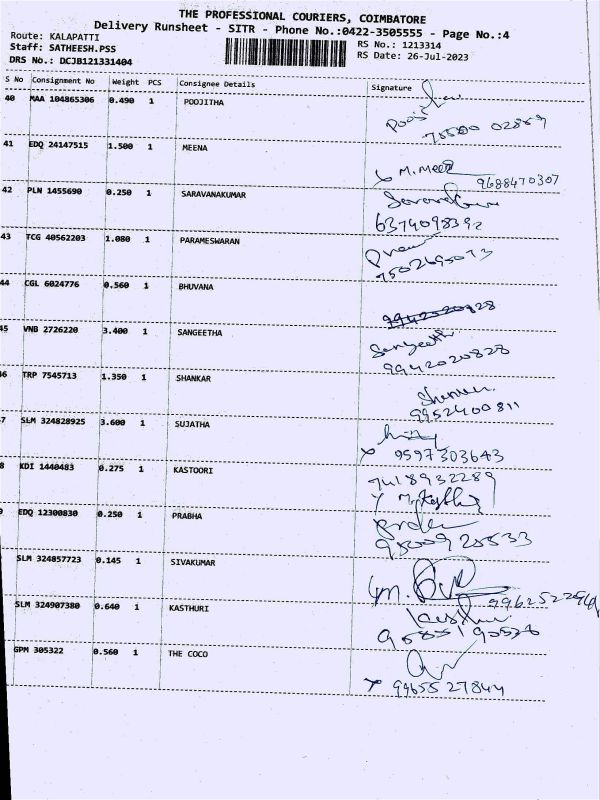 THE PROFESSIONAL COURIERS, COIMBATORE
Delivery Runsheet - SITR - Phone No.:0422-3505555 - Page No.:4
Route: KALAPATTI
Staff: SATHEESH.PSS
DRS No.: DCJB121331404
RS No.: 1213314
RS Date: 26-Jul-2023
S No Consignment No Weight PCS Consignee Details Signature
40 MAA 104865306 0.490 1 POOJITHA
41 EDQ 24147515 1.500 1 MEENA
M. Meena
9688470307
42 PLN 1455690 0.250 1 SARAVANAKUMAR
6374098392
43 TCG 40562203 1.080 1 PARAMESWARAN
7502695073
44 CGL 6024776 0.560 1 BHUVANA
45 VNB 2726220 3.400 1 SANGEETHA
Sangeetha
9942020828
46 TRP 7545713 1.350 1 SHANKAR
9952400811
7 SLM 324828925 3.600 1 SUJATHA
9597303643
8 KDI 1440483 0.275 1 KASTOORI
7418932289
9 EDQ 12300830 0.250 1 PRABHA
SLM 324857723 0.145 1 SIVAKUMAR
SLM 324907380 0.640 1 KASTHURI
GPM 305322 0.560 1 THE COCO
9965527844